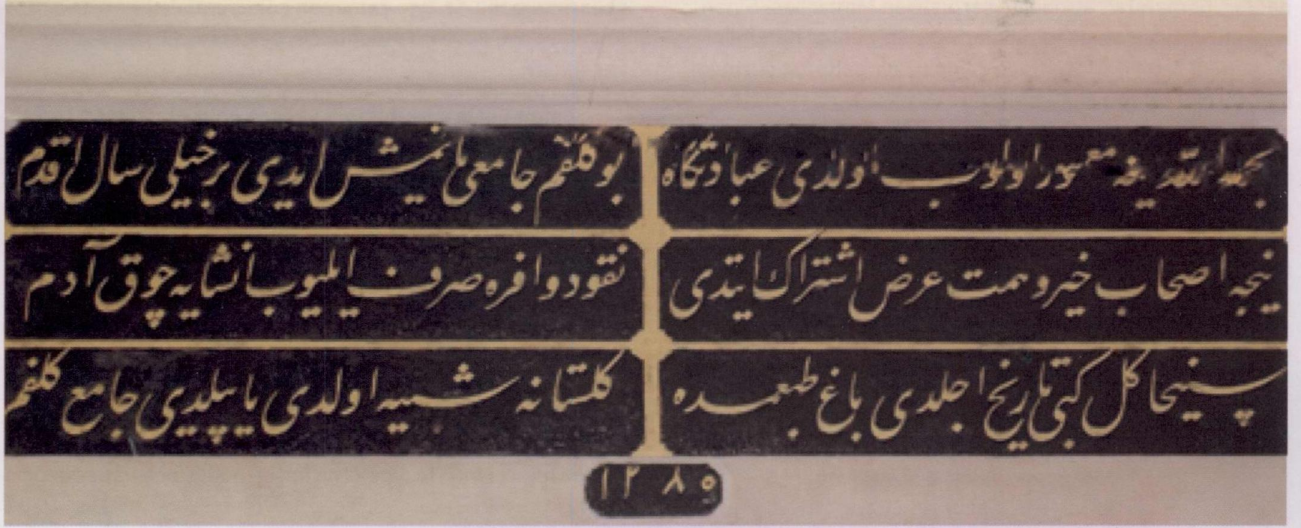 بحمد الله ینه معمور اولوب اولدی عبادتگاه
بو كلفم جامعی یانمش ایدی بر خیلی سال اقدم
نیجه اصحاب خیر و همت عرض اشتراك ایتدی
نقود وافره صرف ایلیوب انشایه چوق آدم
سنیحا كل كبی تاریخ اچلدی باغ طبعمده
كلستانه شبیه اولدی یاپیلدی جامع كلفم
١٢٨٠